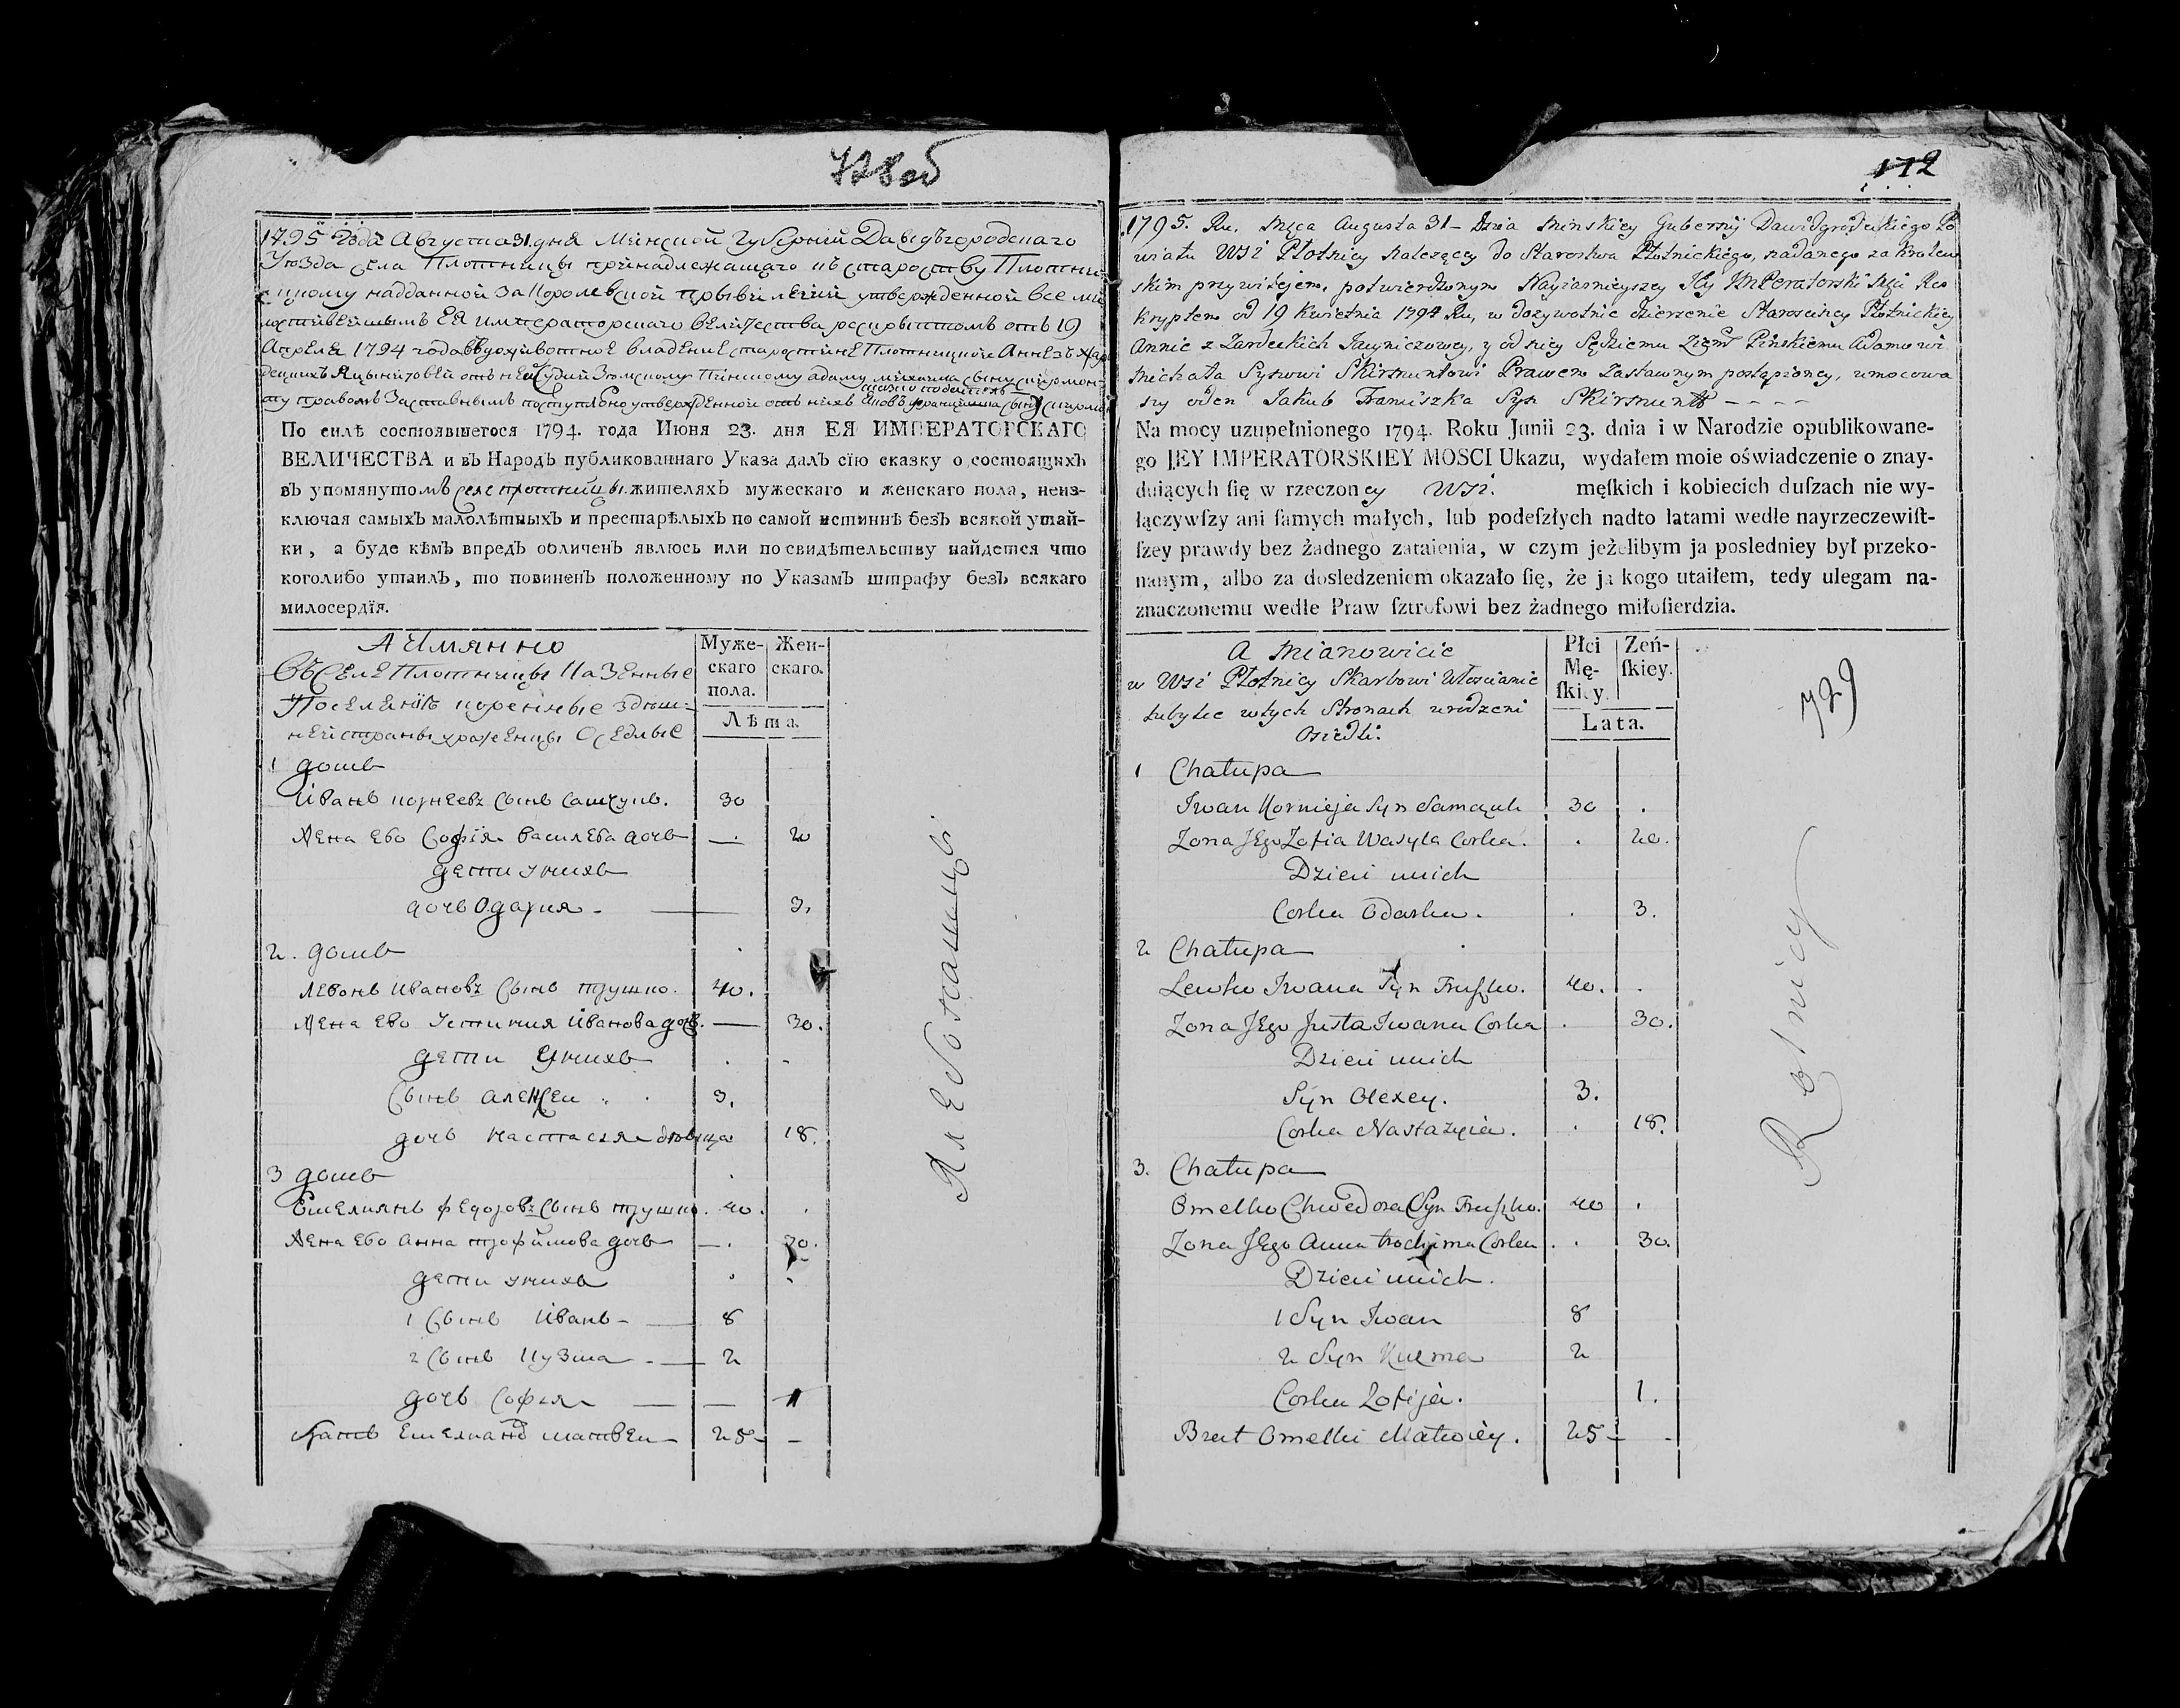 728об
1795 года Августа 31. дня Минской Губернии Давидъгородскаго
Уезда села Плотницы принадлежащаго къ староству Плотни-
цкому надданной за Королевской прывилегии утвержденной все ми-
лостивейшымъ ЕЯ императорскаго величества рескрыптомъ отъ 19
Апреля 1794 года въ дожывотное владение старостине Плотницкой Анне зъ
отъ ней Судии Земскому Пинскому адаму михаила сыну скирмон-
ту правомъ Заставнымъ поступлено утвержденной отъ нихъ Яковъ францишка сынъ
По силѣ состоявшегося 1794. года Июня 23. дня ЕЯ ИМПЕРАТОРСКАГО
ВЕЛИЧЕСТВА и въ Народъ публикованнаго Указа далъ сїю сказку о состоящихъ
въ упомянутомъ селе плотницы. жителяхъ мужескаго и женскаго пола, неиз-
ключая самыхъ малолѣтныхъ и престарѣлыхъ по самой истиннѣ безъ всякой утай-
ки, а буде кѣмъ впредъ обличенъ явлюсь или по свидѣтельству найдется что
коголибо утаилъ, то повиненъ положенному по Указамъ штрафу безъ всякаго
милосердїя.
А Имянно
въ Селе Плотницы Казенные
Поселянѣ коренные здѣш-
ней страны урожен­цы Оседлые
Муже-
скаго
пола.
Жен-
скаго.
Лѣта.
1 домъ
Иванъ корнеевъ сынъ самцукъ. 30
Жена ево Софія василева дочь — 20
дети у нихъ
дочь Одарка - 3.
2. домъ
Левонъ Ивановъ сынъ трушко. 40.
Жена ево Устиния Иванова дочь. — 30.
дети У нихъ
сынъ алексей 3.
дочь настасия дѣвица 18.
3 домъ
Емелианъ федоровъ сынъ трушко. 40.
Жена ево анна трофимова дочь — 30.
дети у нихъ
1 сынъ Иванъ - 8
2 сынъ Кузма - 2
дочь софия — 1
братъ Емелиана матвей 25 -
172
1795. Ru. Mąca Augusta 31 - Dnia Minskiey Gubernij Dawidgrodeckiego Po
wiatu WSi Płotnicy należący do Starostwa Płotnickiego, nadanego za Krolew
skim przywilejem, potwierdzonym Nayiasnieyszey Jey Imperatorskiey Mci Res
kryptem od 19 Kwietnia 1794 Ru, w dożywotnie dzierzenie Starosciney Płotnickiey
Annie z Zardeckich y od niey Sędziemu Ziem Pinskiemu Adamowi
Michała Synowi Skirmuntowi Prawem Zastawnym postąpioney, umocowa
ny oden Jakub Franciszka Syn Skirmuntt - - - -
Na mocy uzupełnionego 1794. Roku Junii 23. dnia i w Narodzie opublikowane-
go JEY IMPERATORSKIEY MOSCI Ukazu, wydałem moie oświadczenie o znay-
duiących ſię w rzeczoney WSi. męſkich i kobiecich duſzach nie wy-
łączywſzy ani ſamych małych, lub podeſzłych nadto latami wedle nayrzeczewiſt-
ſzey prawdy bez żadnego zataienia, w czym jeżelibym ja posledniey był przeko-
nanym, albo za dosledzeniem okazało ſię, że ja kogo utaiłem, tedy ulegam na-
znaczonemu wedle Praw ſztrofowi bez żadnego miłoſierdzia.
A Mianowicie
w WSi Płotnicy Skarbowi Włoscianie
tubylce w tych Stronach urodzeni
Osiedli.
Płci
Mę-
ſkiey.
Zeń-
ſkiey.
Lata.
729
1 Chałupa
Iwan Kornieja Syn Samczuk 30 .
Zona Jego Zofia Wasyla Corka. . 20.
Dzieci u nich
Corka Odarka. . 3.
2 Chałupa
Lewko Iwana Syn Truszko. 40. .
Zona Jego Justa Iwana Corka . 30.
Dzieci u nich
Syn Olexey. 3.
Corka Nastazyia. . 18.
3. Chałupa
Omelko Chwedora Syn Truszko. 40 .
Zona Jego Anna trochima Corka . . 30.
Dzieci u nich.
1 Syn Iwan 8
2 Syn Kuzma 2
Corka Zofija. 1.
Brat Omelki Matwiey. 25 - -